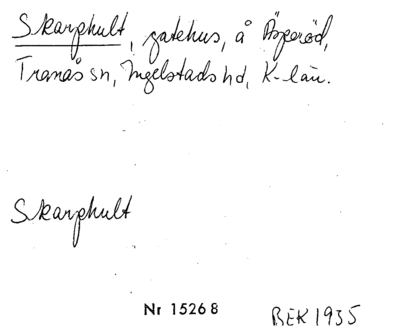 Skarphult, gatehus, å Äsperöd,
Tranås sn, Ingelstads hd, K-län.
Skarphult
Nr 15268 BEK 1935